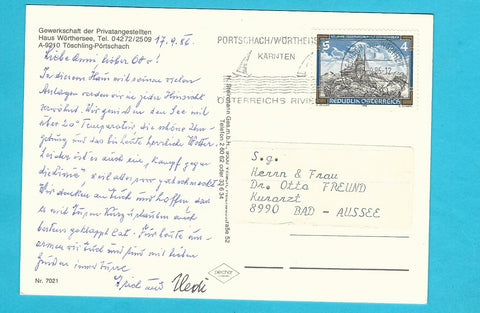 Gewerkschaft der Privatangestellten
Haus Wörthersee, Tel. 04272/2509
A-9210 Töschling-Pörtschach
17.9.86.
Liebe Anni, lieber Otto!
In diesem Haus mit seinen vielen
Anlagen werden wir in jeder Hinsicht
verwöhnt. Wir genießen den See mit
über 20° Temperatur, die schöne Um-
gebung und das bisher herrliche Wetter.
Leider ist es auch ein "Kampf gegen
die Kilos", weil alles prima geschmeckt.
Wir denken an Euch und hoffen, daß
es mit Eurem Kurzurlauben auch
bestens geklappt hat. Für heute um-
armen wir Euch und sind mit lieben
Grüßen immer Eure
Erich und Hedi
Nr. 7021
Telefon 2 60 62 oder 33 6 34
PÖRTSCHACH/WÖRTHERSEE
KÄRNTEN
ÖSTERREICHS RIVIERA
5 4
REPUBLIK ÖSTERREICH
S.g.
Herrn & Frau
Dr. Otto FREUND
Kurarzt
8990 BAD-AUSSEE